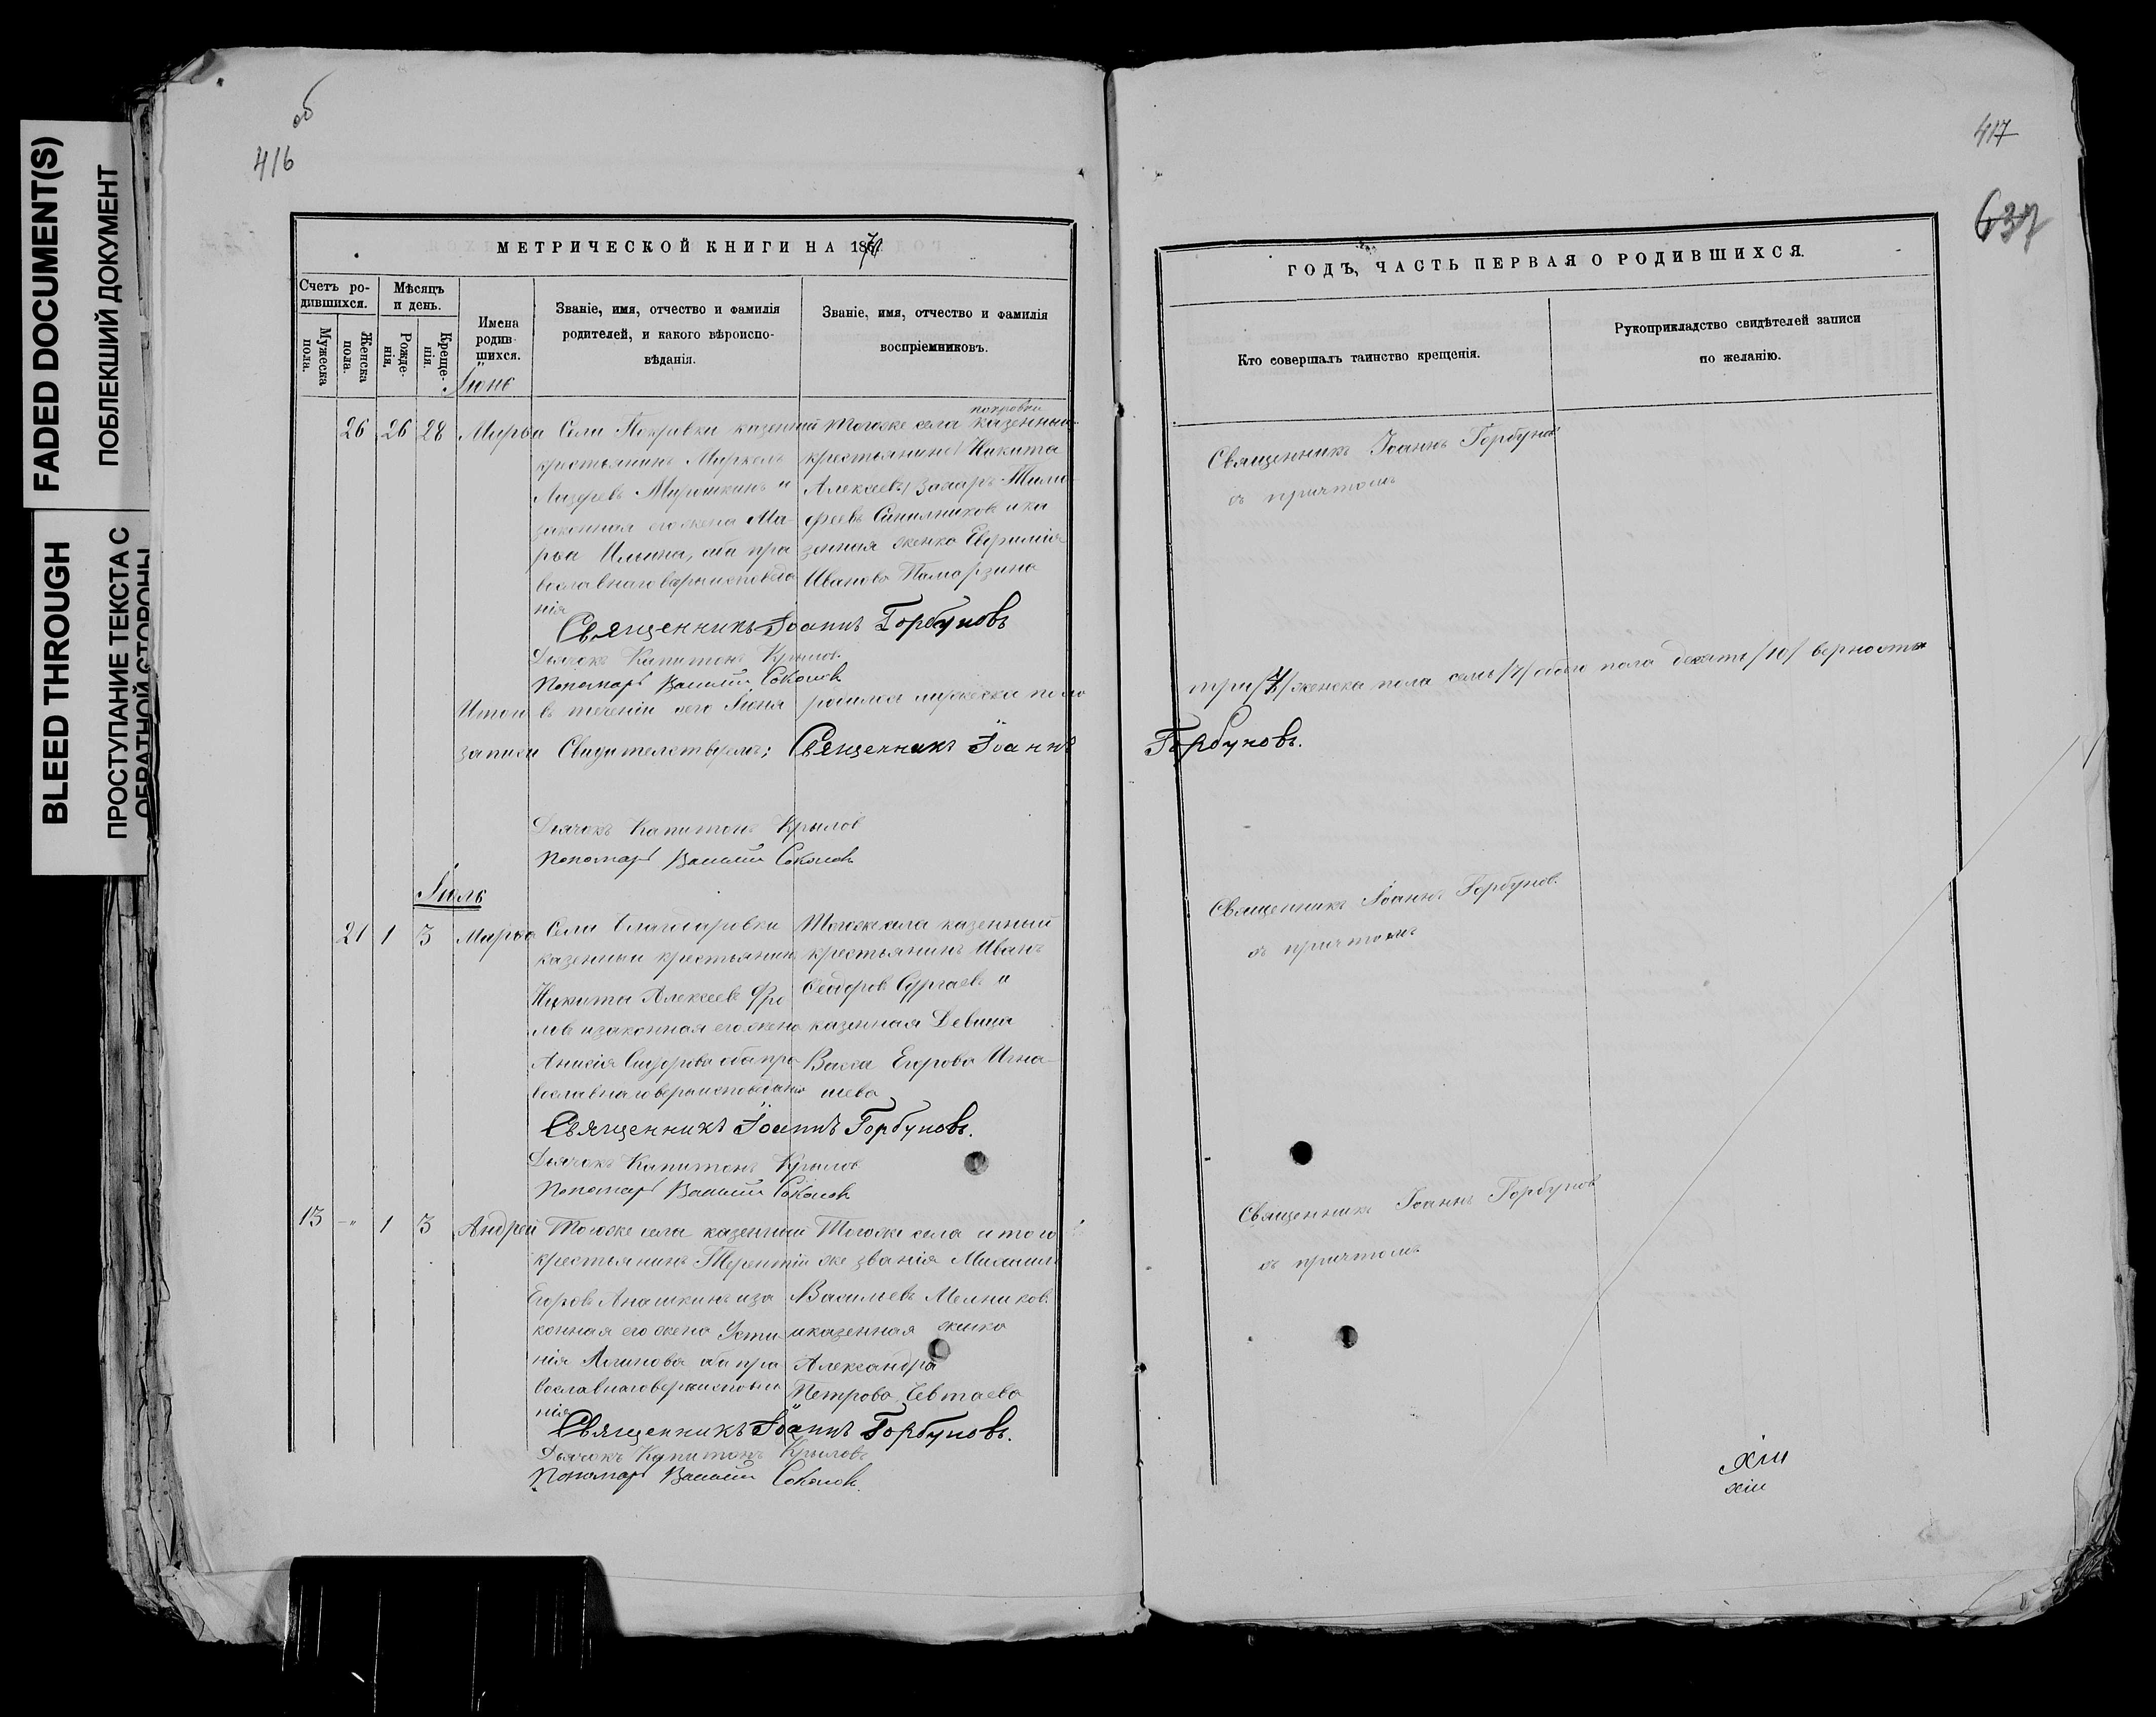 FADED DOCUMENT(S)
ПОБЛЕКШИЙ ДОКУМЕНТ
BLEED THROUGH
ПРОСТУПАНИЕ ТЕКСТА С
ОБРАТНОЙ СТОРОНЫ
об
416
МЕТРИЧЕСКОЙ КНИГИ НА 187
Счетъ ро-
дившихся.
Мѣсяцъ
и день.
Мужеска
пола.
Женска
пола.
Рожде-
нія.
Креще-
нія.
Имена
родив-
шихся.
Званіе, имя, отчество и фамилія
родителей, и какого вѣроиспо-
вѣданія.
Званіе, имя, отчество и фамилія
воспріемниковъ.
Іюнь
26 26 28 Марѳа
Села Покровки казенный
крестьянинъ
и
законная его жена Ма-
рѳа Ильина, оба пра
вославнаго вѣроисповѣда
нія
покровки
Тогоже села казенный
крестьянинъ Никита
Алексеевъ Захаръ Тимо
феевъ и ка
зенная женка Евфимія
Иванова
Священникъ Іоаннъ Горбуновъ
Дьячокъ Капитонъ Крыловъ
Пономарь Василій Соколовъ
Итого въ теченіи сего Іюня родилось мужеска пола
записи Свидетельствуемъ; Священникъ Іоаннъ
Дьячокъ Капитонъ Крылов
Пономарь Василій Соколовъ
Іюль
21 1 3 Марѳа
Села Благодаровки
казенный крестьянинъ
Никита Алексеевъ Фро
ловъ и законная его жена
Анисія Сидорова оба пра
вославнаго вероисповеданія
Тогоже села казенный
крестьянинъ Иванъ
Сидоровъ Сургаевъ и
казенная Девица
Васса Егорова Игна-
шева
Священникъ Іоаннъ Горбуновъ.
Дьячокъ Капитонъ Крылов
Пономарь Василій Соколовъ
13 -„ 1 3 Андрей
Тогоже села казенный
крестьянинъ Терентій
Егоровъ Анашкинъ и за
конная его жена Усти
нія Логинова оба пра
вославнаго вероисповеда
нія
Тогоже села и того
же званія Михаилъ
Васильевъ Мелников.
и казенная женка
Александра
Петрова Чевтаева
Священникъ Іоаннъ Горбуновъ.
Дьячокъ Капитонъ Крыловъ
Пономарь Василій Соколовъ.
417
637
ГОДЪ, ЧАСТЬ ПЕРВАЯ О РОДИВШИХСЯ.
Кто совершалъ таинство крещенія.
Рукоприкладство свидѣтелей записи
по желанію.
Священникъ Іоаннъ Горбуновъ
съ причтомъ
три /3/ женска пола семь /7/ обоего пола десять /10/ верность
Горбуновъ.
Священникъ Іоаннъ Горбунов.
съ причтомъ
Священникъ Іоаннъ Горбунов
съ причтомъ